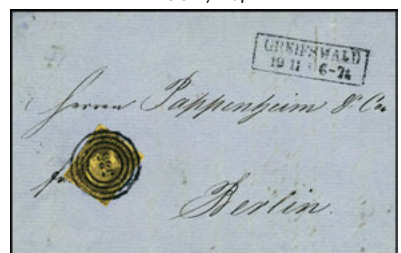 GREIFSWALD
19 11 6-7½
Herren Pappenheim & Co
fr.
Berlin.